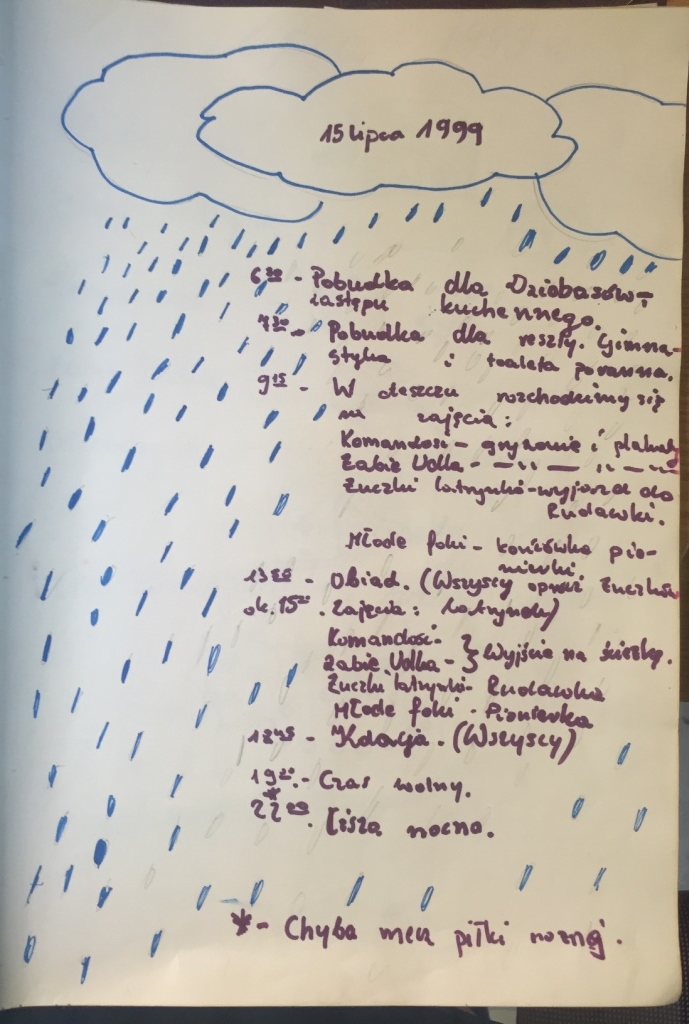 15 lipca 1999
6³⁰ - Pobudka dla Dziobasów -
zastępu kuchennego.
7³⁰ - Pobudka dla reszty. Gimna-
styka i toaleta poranna.
9¹⁵ - W deszczu rozchodzimy się
na zajęcia:
Komandosi - gryzowanie i plakaty
Żabie Udka - — " — " — " —
Żuczki latrynki - wyjazd do
Rudawki.
Młode foki - końcówka pio-
nierki.
13⁰⁰ - Obiad. (Wszyscy oprócz Żuczków
ok. 15⁰⁰. Zajęcia: Latrynek)
Komandosi -
Żabie Udka - } Wyjście na ścieżkę.
Żuczki latrynki - Rudawka
Młode foki - Pionierka
18⁴⁵ - Kolacja. (Wszyscy)
19³⁰ - Czas wolny.
*
22⁰⁰. Cisza nocna.
* - Chyba mecz piłki nożnej.